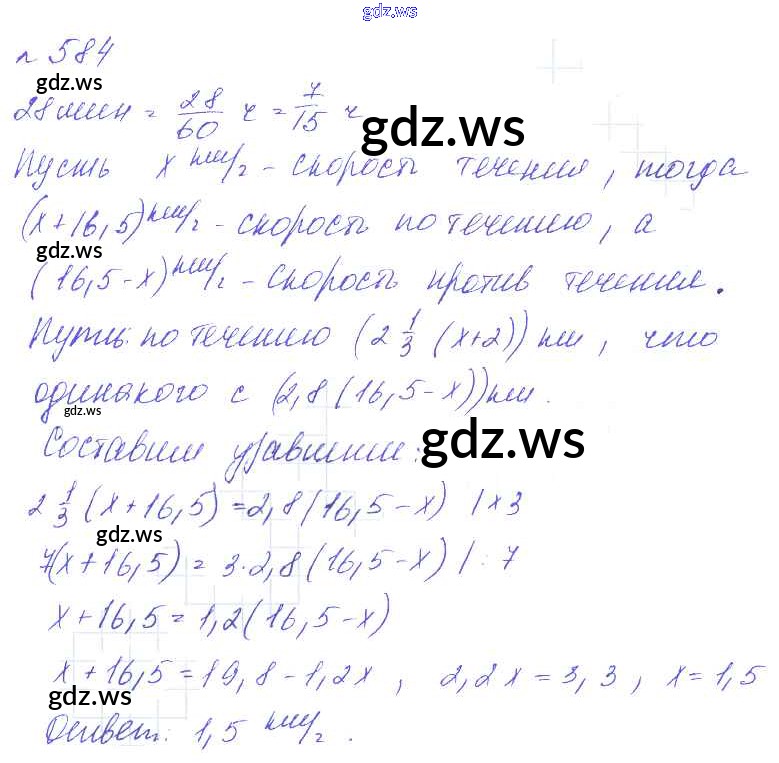 gdz.ws
№ 584
gdz.ws
28 мин = 28/60 ч = 7/15 ч
gdz.ws
Пусть x км/ч - скорость течения, тогда
(x+16,5) км/ч - скорость по течению, а
gdz.ws
(16,5-x) км/ч - скорость против течения.
Путь по течению (2 1/3 (x+2)) км, что
одинакого с (2,8(16,5-x)) км.
gdz.ws
Составим уравнение:
gdz.ws
2 1/3 (x+16,5) = 2,8(16,5-x) | x 3
gdz.ws
7(x+16,5) = 3·2,8(16,5-x) | : 7
x+16,5 = 1,2(16,5-x)
x+16,5 = 19,8-1,2x, 2,2x = 3,3, x = 1,5
gdz.ws
Ответ: 1,5 км/ч.
gdz.ws